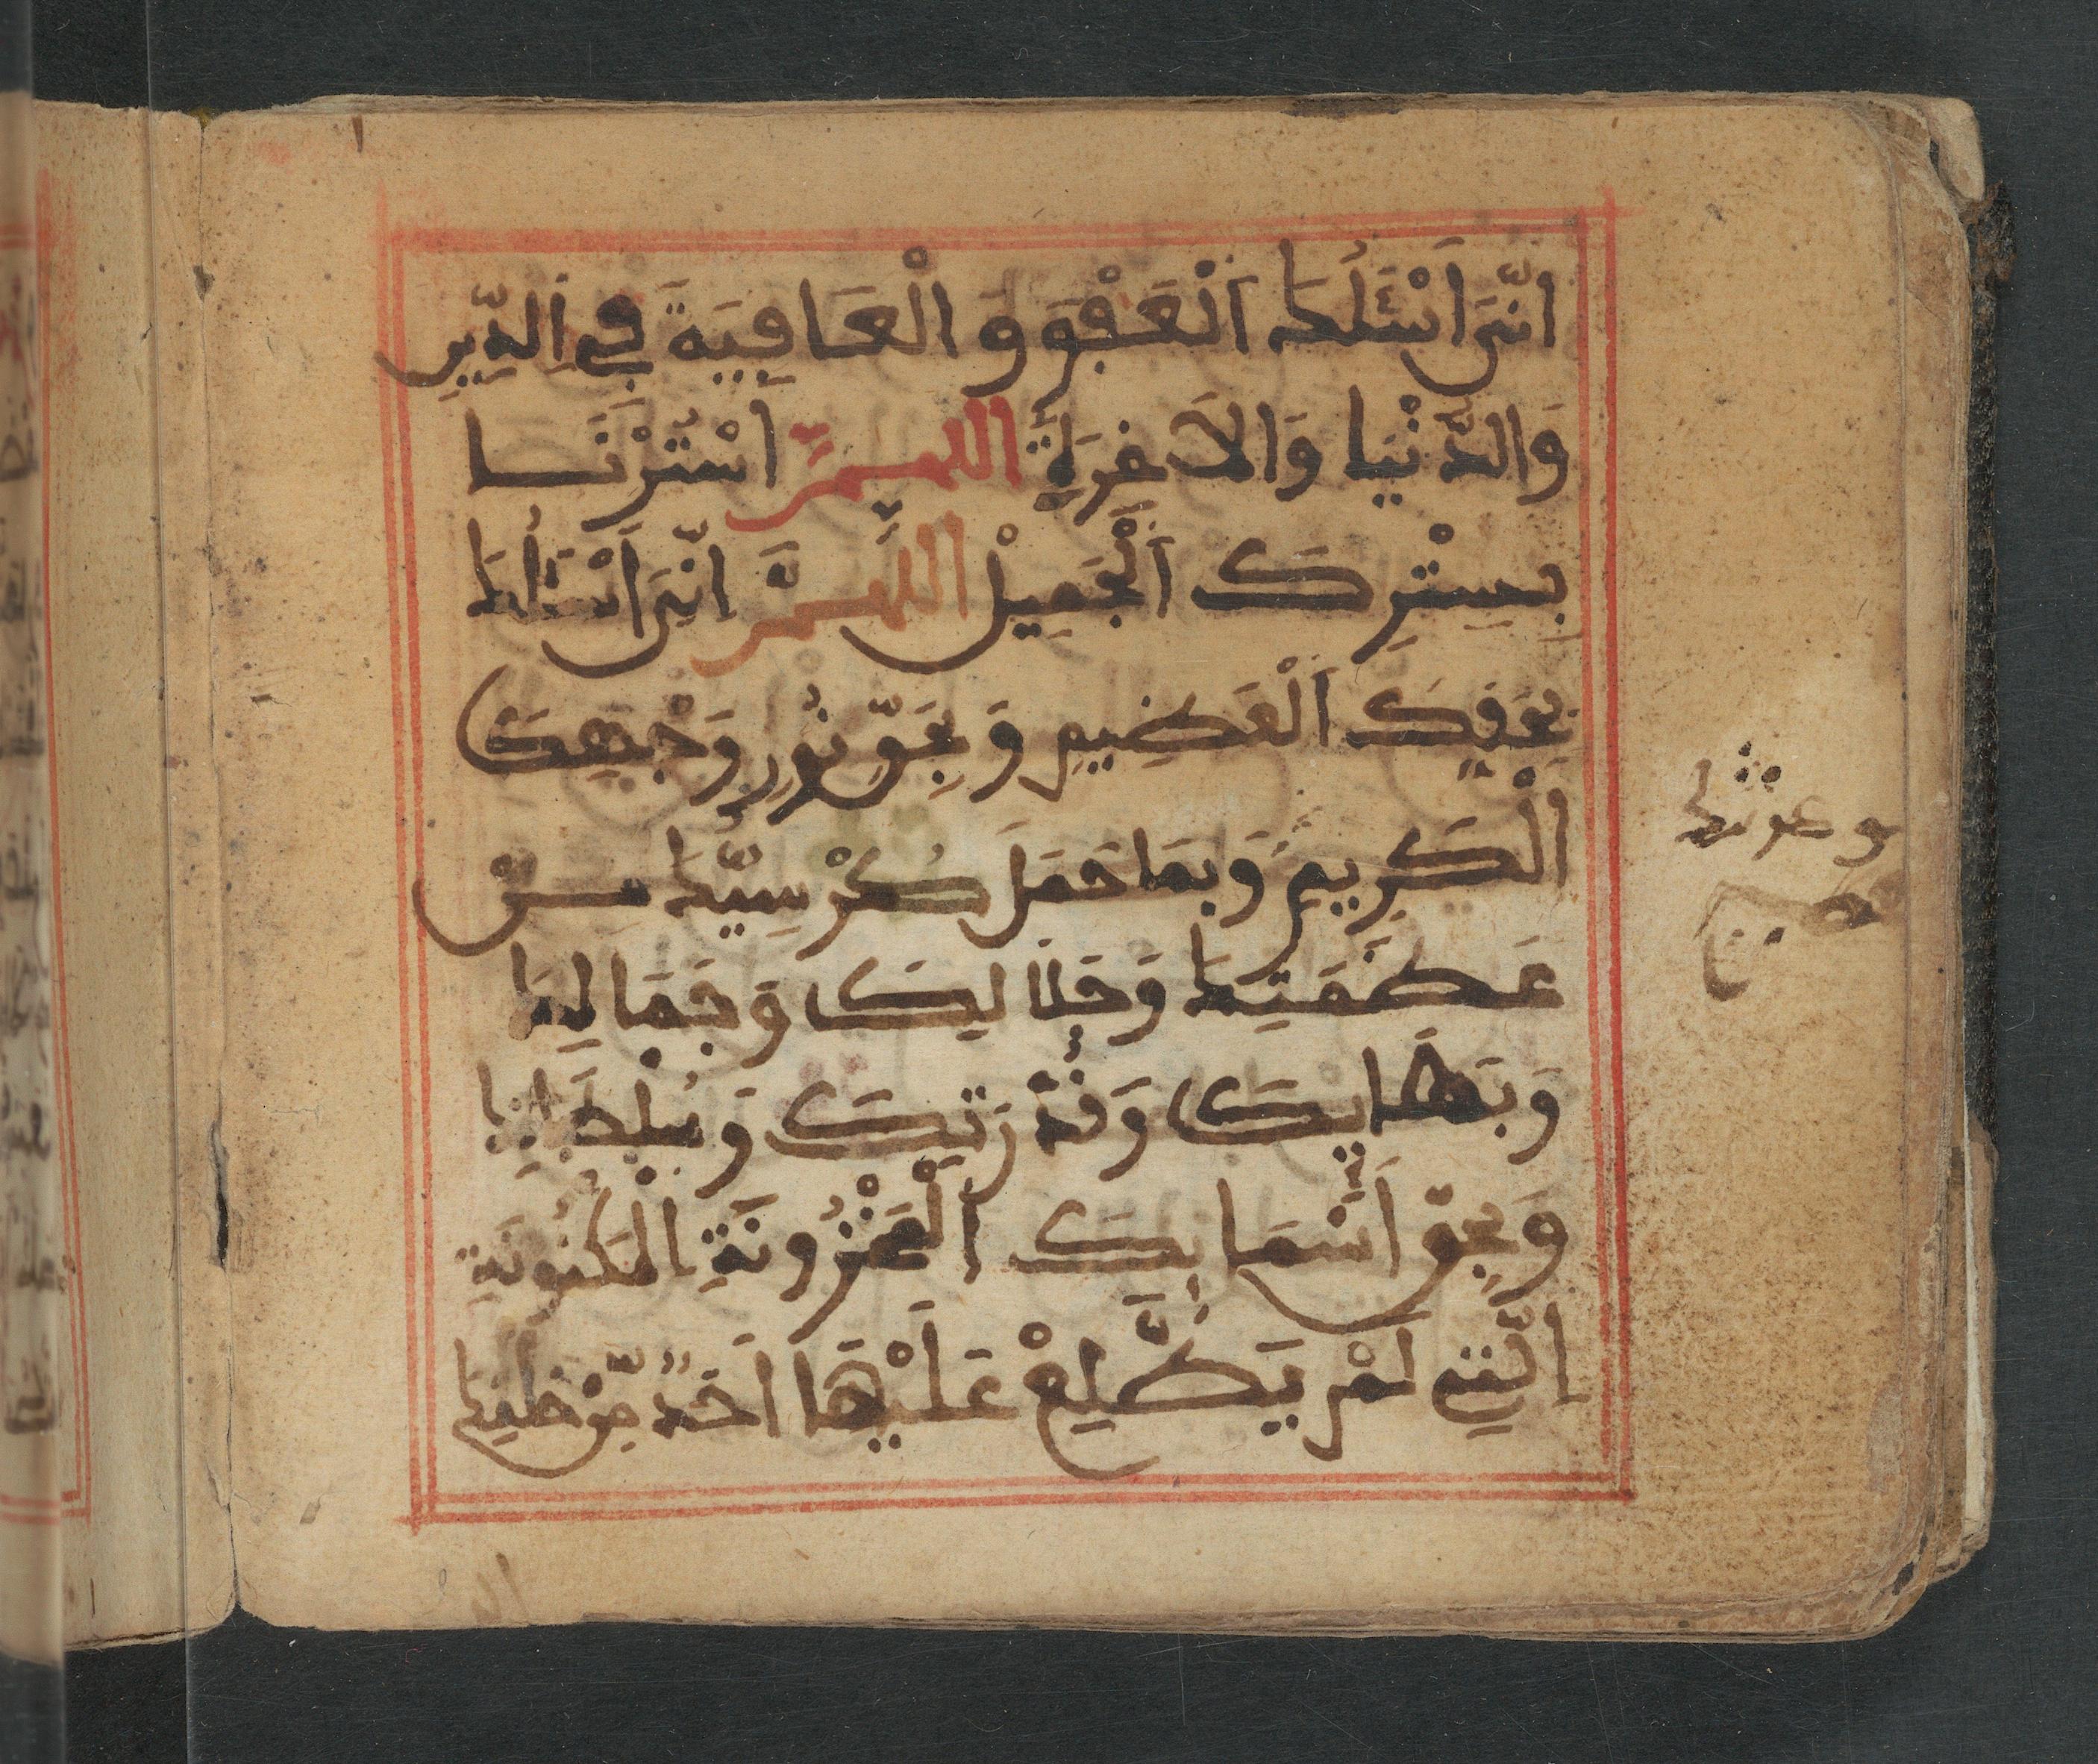 انِّيَ أَسْئَلُكَ اَلْعَفْوَ وَالْعَافِيَةَ فِي اِلدِّينِ
وَالدُّنْيَا وَالاَخِرَةِ اللهمَّ اسْتُرْنَا
بِسِتْرِكَ اَلْجَمِيلْ اللهمَّ انِّيَ أَسْئَلُكَ
بِحَقِّكَ اَلْعَظِيمِ وَبِحَقِّ نُورِ وَجْهِكَ
اَلْكَرِيمِ وَبِمَا حَمَلَ كُرْسِيُّكَ مِنْ
عَظَمَتِكَ وَجَلَالِكَ وَجَمَالِكَ
وَبَهَايِكَ وَقُدْرَتِكَ وَسُلْطَانِكَ
وَبِحَقِّ أَسْمَايِكَ اَلْمَخْزُونَةِ الْمَكْنُونَةِ
الَّتِي لَمْ يَطَّلِعْ عَلَيْهَا اَحَدٌ مِّنْ خَلْقِكَ